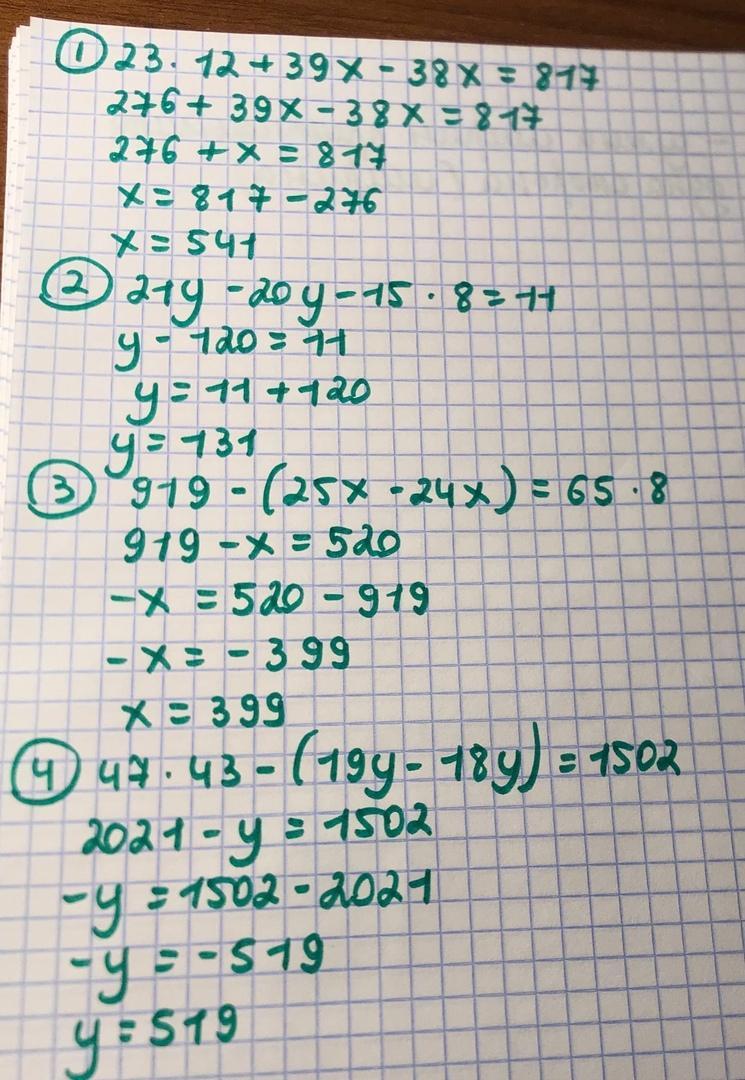 ① 23 · 12 + 39x - 38x = 817
276 + 39x - 38x = 817
276 + x = 817
x = 817 - 276
x = 541
② 21y - 20y - 15 · 8 = 11
y - 120 = 11
y = 11 + 120
y = 131
③ 919 - (25x - 24x) = 65 · 8
919 - x = 520
-x = 520 - 919
-x = - 399
x = 399
④ 47 · 43 - (19y - 18y) = 1502
2021 - y = 1502
-y = 1502 - 2021
-y = - 519
y = 519